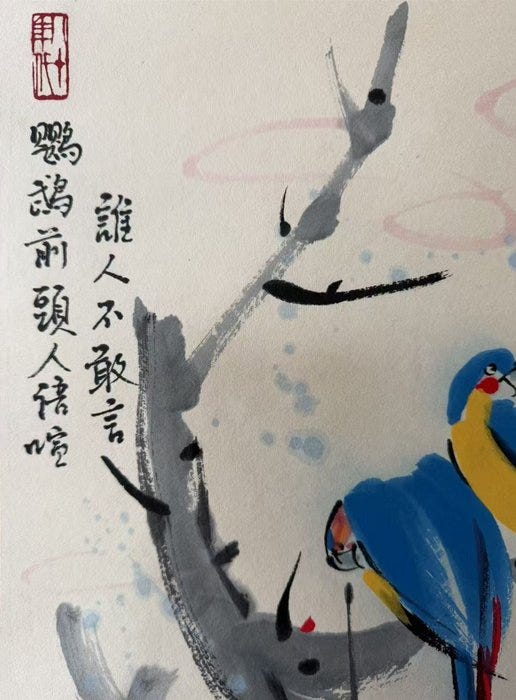 鸚鵡前頭人語喧
誰人不敢言